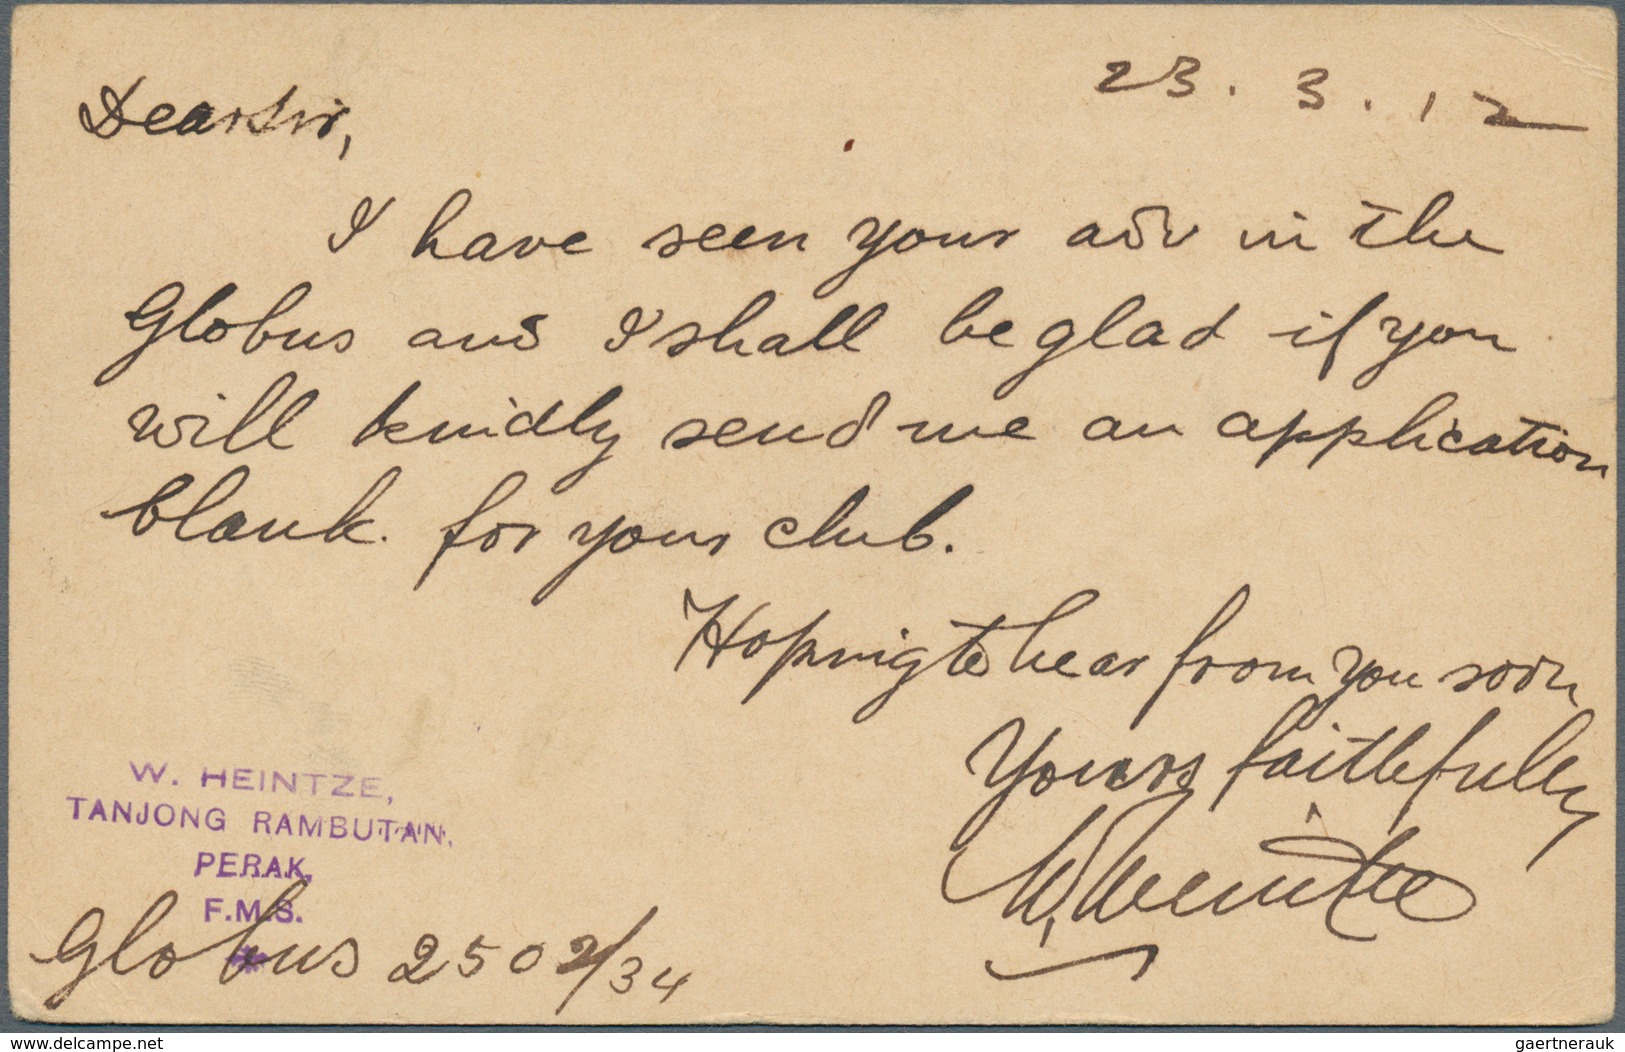 23.3.12
Dear Sir,
I have seen your adv in the
Globus and I shall be glad if you
will kindly send me an application
blank. for your club.
Hoping to hear from you soon
Yours faithfully
W. Heintze
W. HEINTZE,
TANJONG RAMBUTAN,
PERAK,
F.M.S.
Globus 2502/34
www.delcampe.net
gaertnerauk